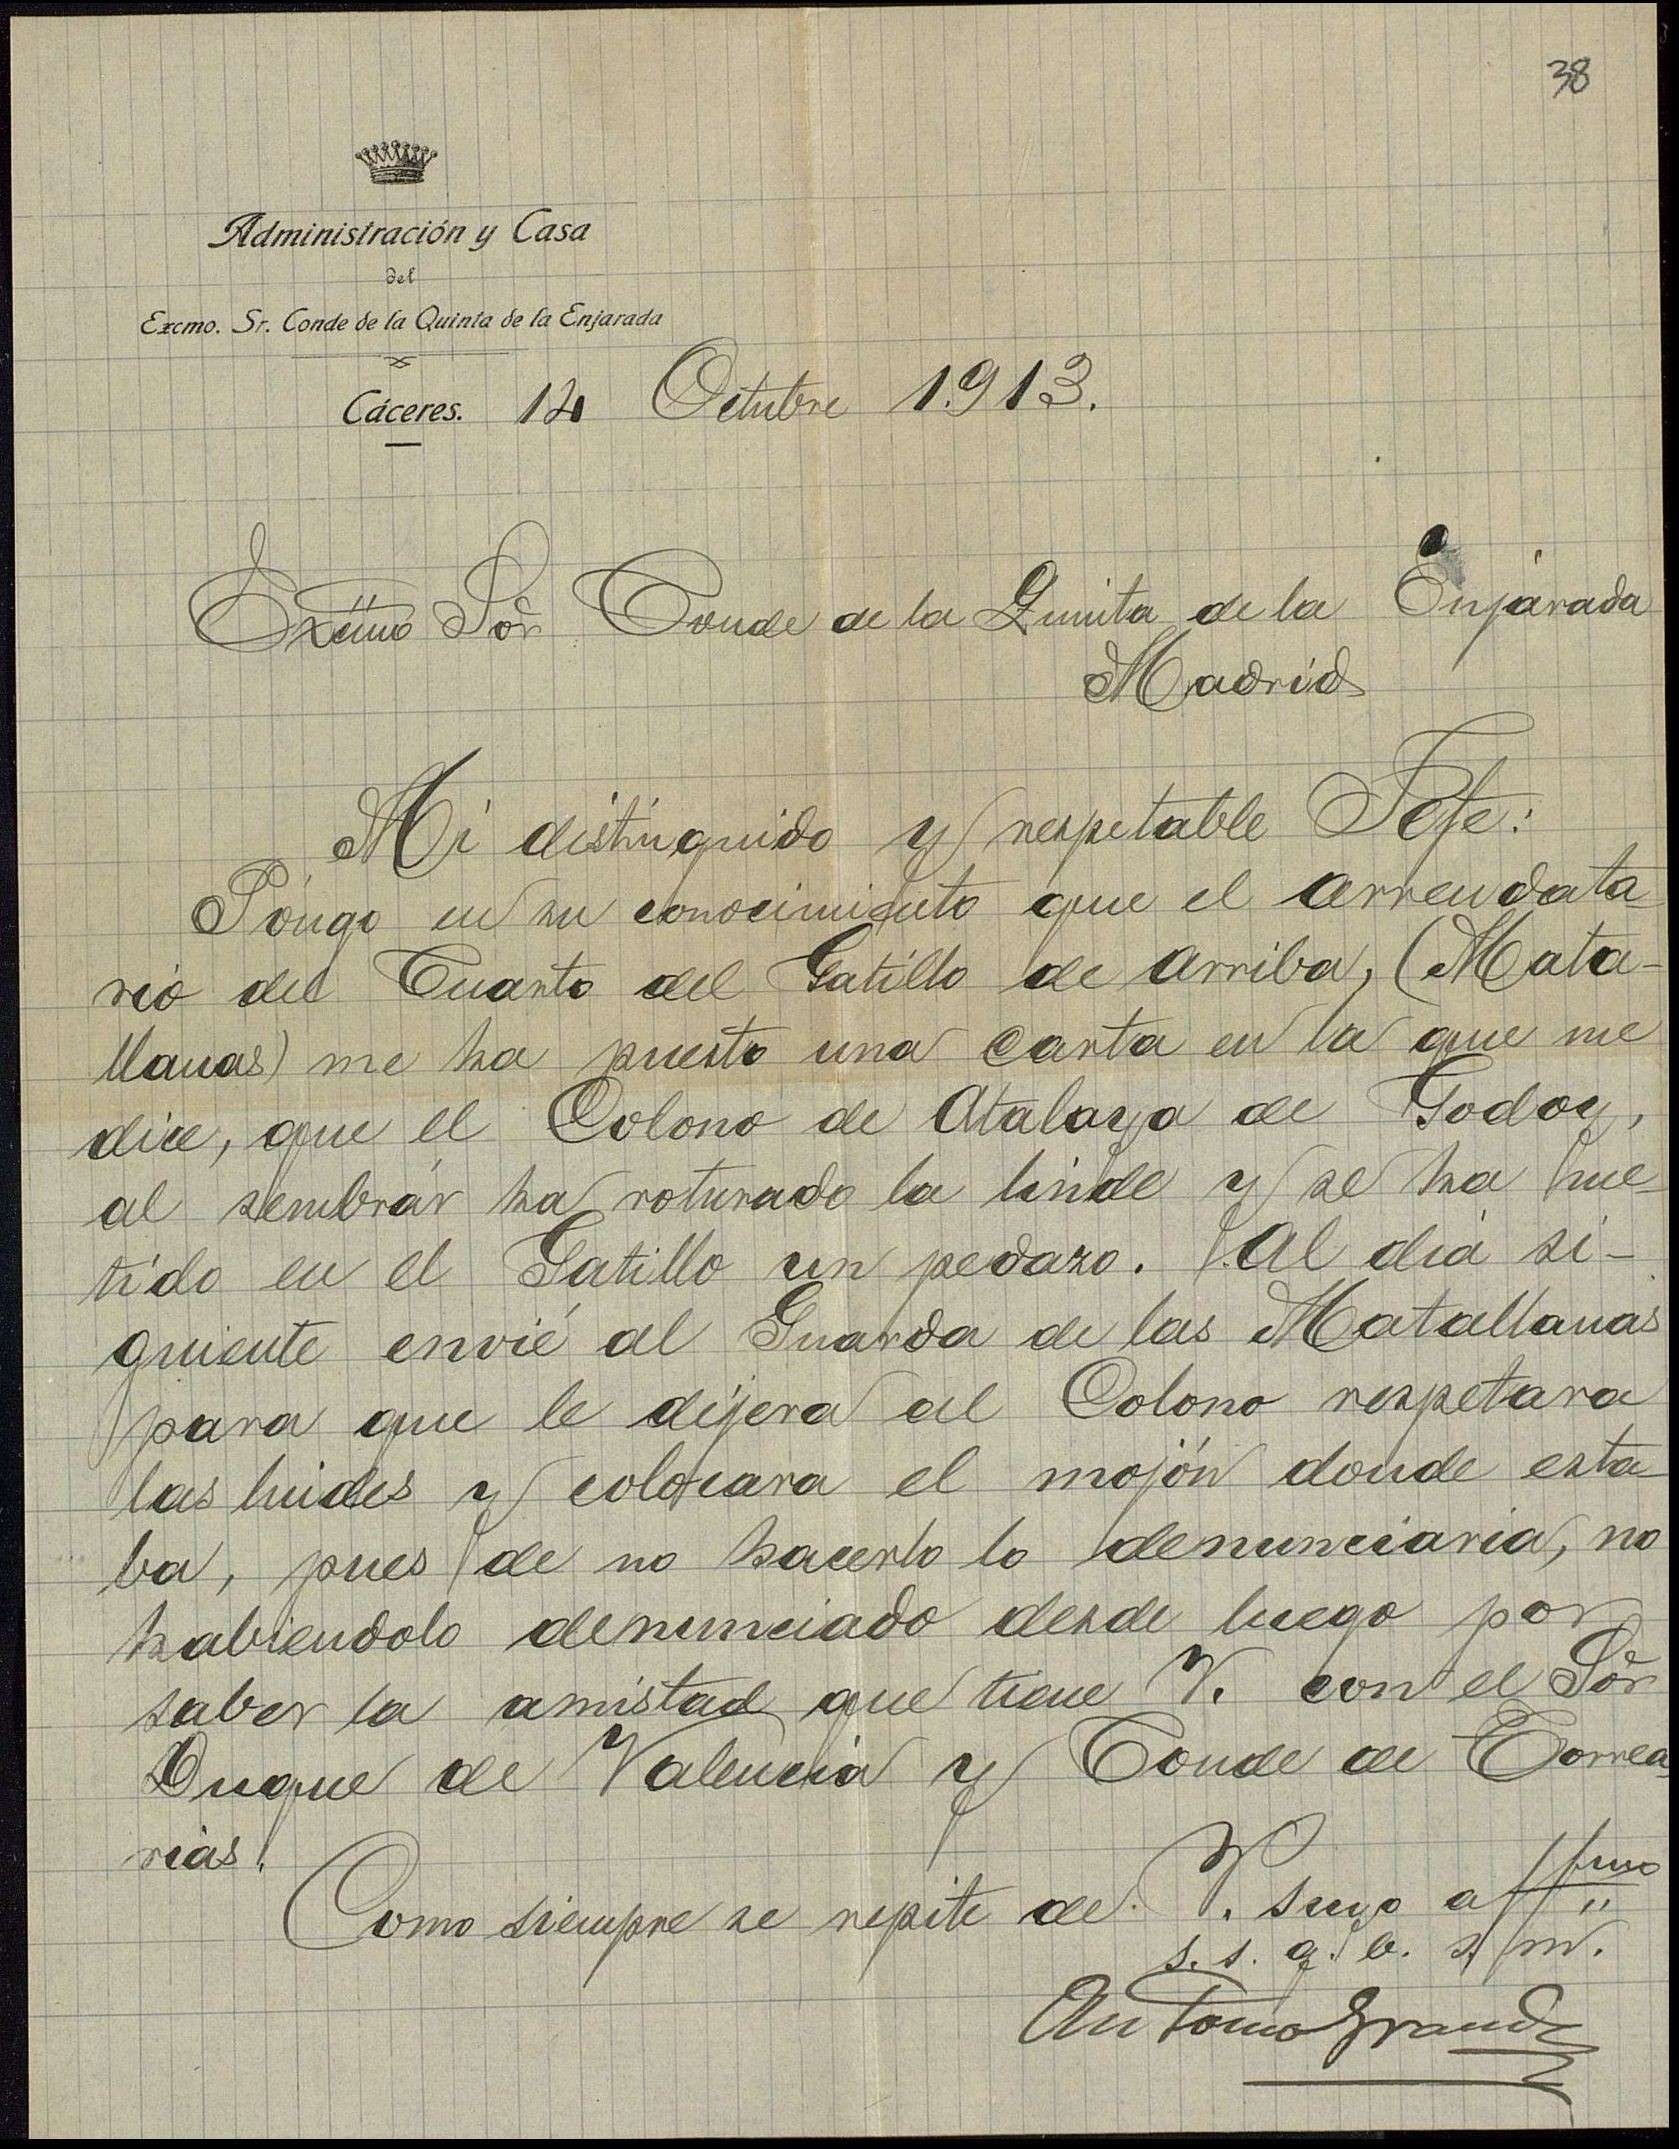 38
Administración y Casa
del
Excmo. Sr. Conde de la Quinta de la Enjarada
Cáceres. 14 Octubre 1.913.
Excmo Sör Conde de la Quinta de la Enjarada
Madrid
Mi distinguido y respetable Jefe:
Póngo en su conocimiento que el arrendata-
rio del Cuarto del Gatillo de arriba, (Mata-
llanas) me ha puesto una carta en la que me
dice, que el Colono de Atalaya de Godoy,
al sembrár ha roturado la linde y se ha me-
tido en el Gatillo un pedazo. Al dia si-
guiente envié al Guarda de las Matallanas
para que le dijera al Colono respetara
las lindes y colocara el mojón donde esta-
ba, pues de no hacerlo lo denunciaria, no
habiendolo denunciado desde luego por
saber la amistad que tiene V. con el Sör
Duque de Valencia y Conde de Torrea-
rias.
Como siempre se repite de V. suyo affmo
s. s. q. b. s. m.
Antonio Grande